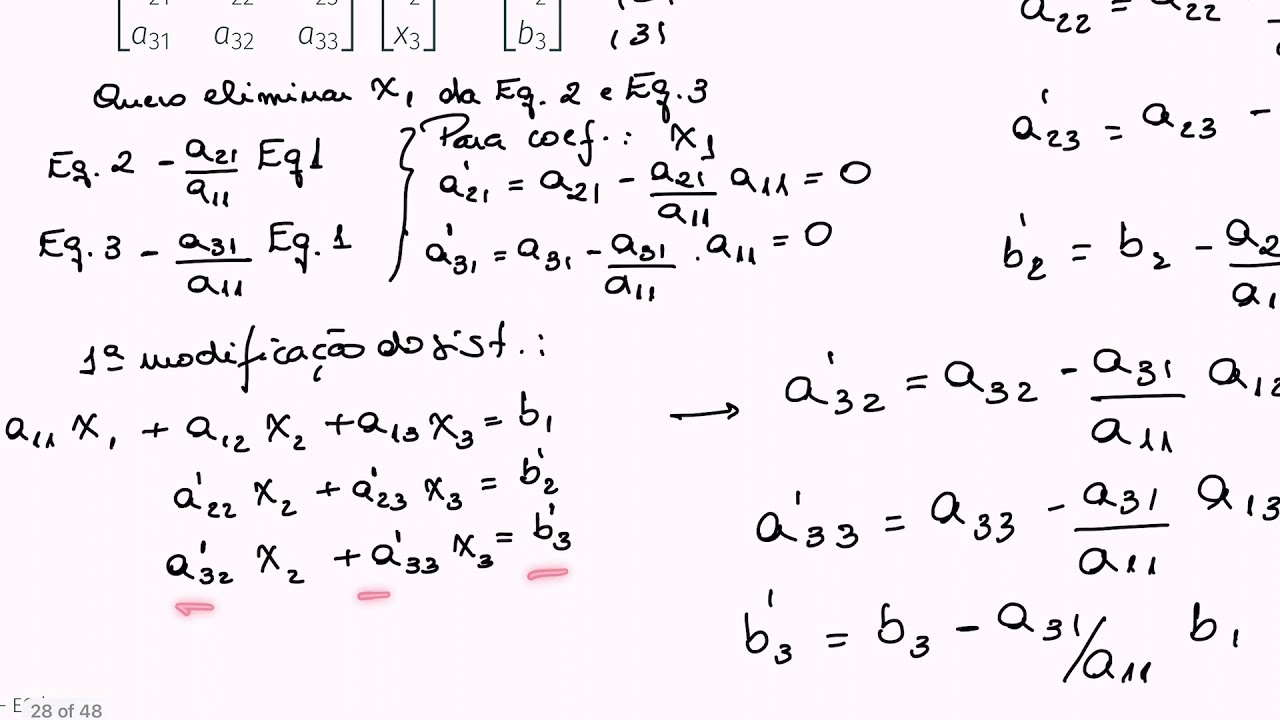 a31 a32 a33 x3 b3 (3)
Quero eliminar x1 da Eq. 2 e Eq. 3
Eq. 2 - a21/a11 Eq1
Eq. 3 - a31/a11 Eq. 1
Para coef.: x1
a'21 = a21 - a21/a11 a11 = 0
a'31 = a31 - a31/a11 . a11 = 0
1ª modificação do sist.:
a11 x1 + a12 x2 + a13 x3 = b1
a'22 x2 + a'23 x3 = b'2
a'32 x2 + a'33 x3 = b'3
a'22 = a22 -
a'23 = a23 -
b'2 = b2 - a2
→ a'32 = a32 - a31/a11 a12
a'33 = a33 - a31/a11 a13
b'3 = b3 - a31/a11 b1
28 of 48